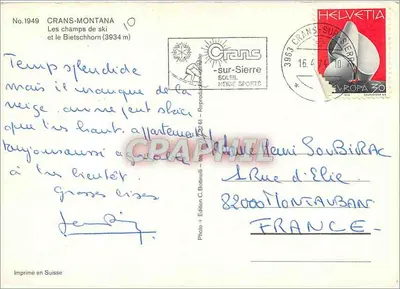 No. 1949 CRANS-MONTANA
Les champs de ski
et le Bietschhorn (3934 m)
10
Crans
-sur-Sierre
SOLEIL
NEIGE SPORTS
3963 CRANS-SUR-SIERRE
16.4.74-10
HELVETIA
EUROPA 30
Temps splendide
mais il manque de la
neige. on ne peut skier
que très haut. appartement
toujours aussi agréable
à très bientôt.
Grosses bises
Henri SOUBIRAC
1 Rue d'Elie
82000 MONTAUBAN
FRANCE
CPAPHIL
Photo + Edition
Imprimé en Suisse